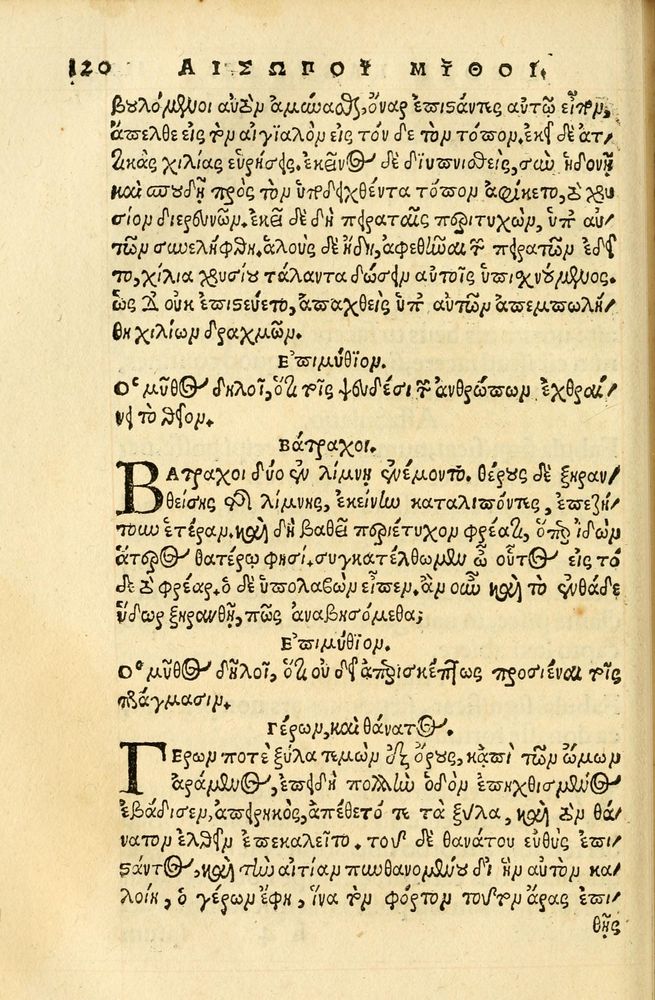 120 ΑΙΣΩΠΟΥ ΜΥΘΟΙ.
βουλόμενοι αὐτὸν ἀμύναςθαι, ὄναρ ἐπιστάντες αὐτῷ εἶπον,
ἄπελθε εἰς τὸν αἰγιαλὸν εἰς τόν δε τὸν τόπον. ἐκεῖ δὲ ἀτ-
τικὰς χιλίας εὑρήσεις. ἐκεῖνος δὲ διυπνισθεὶς, σὺν ἡδονῇ
καὶ σπουδῇ πρὸς τὸν ὑποδειχθέντα τόπον ἀφίκετο, τὸ χρυ-
σίον διερευνῶν. ἐκεῖ δὲ δὴ πειραταῖς περιτυχὼν, ὑπ' αὐ-
τῶν συνελήφθη. ἁλοὺς δὲ ἤδη, ἀφεθῆναι τῶν πειρατῶν ἐδεῖ-
το, χίλια χρυσίου τάλαντα δώσειν αὐτοῖς ὑπισχνούμενος.
ὡς δ' οὐκ ἐπιστεύετο, ἀπαχθεὶς ὑπ' αὐτῶν ἀπεμπωλή-
θη χιλίων δραχμῶν.
Ἐπιμύθιον.
Ὁ μῦθος δηλοῖ, ὅτι τοῖς ψευδέσι τῶν ἀνθρώπων ἐχθραί-
νει τὸ θεῖον.
Βάτραχοι.
ΒΑτραχοι δύο ἐν λίμνῃ ἐνέμοντο. θέρους δὲ ξηραν-
θείσης τῆς λίμνης, ἐκείνην καταλιπόντες, ἐπεζή-
τουν ἑτέραν. καὶ δὴ βαθεῖ περιέτυχον φρέατι, ὅπερ ἰδὼν
ἅτερος θατέρῳ φησί. συγκατέλθωμεν ὦ οὗτος εἰς τό
δε τὸ φρέαρ. ὁ δὲ ὑπολαβὼν εἶπεν. ἂν οὖν καὶ τὸ ἐνθάδε
ὕδωρ ξηρανθῇ, πῶς ἀναβησόμεθα;
Ἐπιμύθιον.
Ὁ μῦθος δηλοῖ, ὅτι οὐ δεῖ ἀπερισκέπτως προσιέναι τοῖς
πράγμασιν.
Γέρων, καὶ θάνατος.
ΓΕρων ποτὲ ξύλα τεμὼν ἐξ ὄρους, κἀπὶ τῶν ὤμων
ἀράμενος, ἐπειδὴ πολλὴν ὁδὸν ἐπηχθισμένος
ἐβάδισεν, ἀπειρηκὼς, ἀπέθετό τε τὰ ξύλα, καὶ τὸν θά-
νατον ἐλθεῖν ἐπεκαλεῖτο. τοῦ δὲ θανάτου εὐθὺς ἐπι-
στάντος, καὶ τὴν αἰτίαν πυνθανομένου δι' ἣν αὐτὸν κα-
λοίη, ὁ γέρων ἔφη, ἵνα τὸν φόρτον τοῦτον ἄρας ἐπι-
θῇς